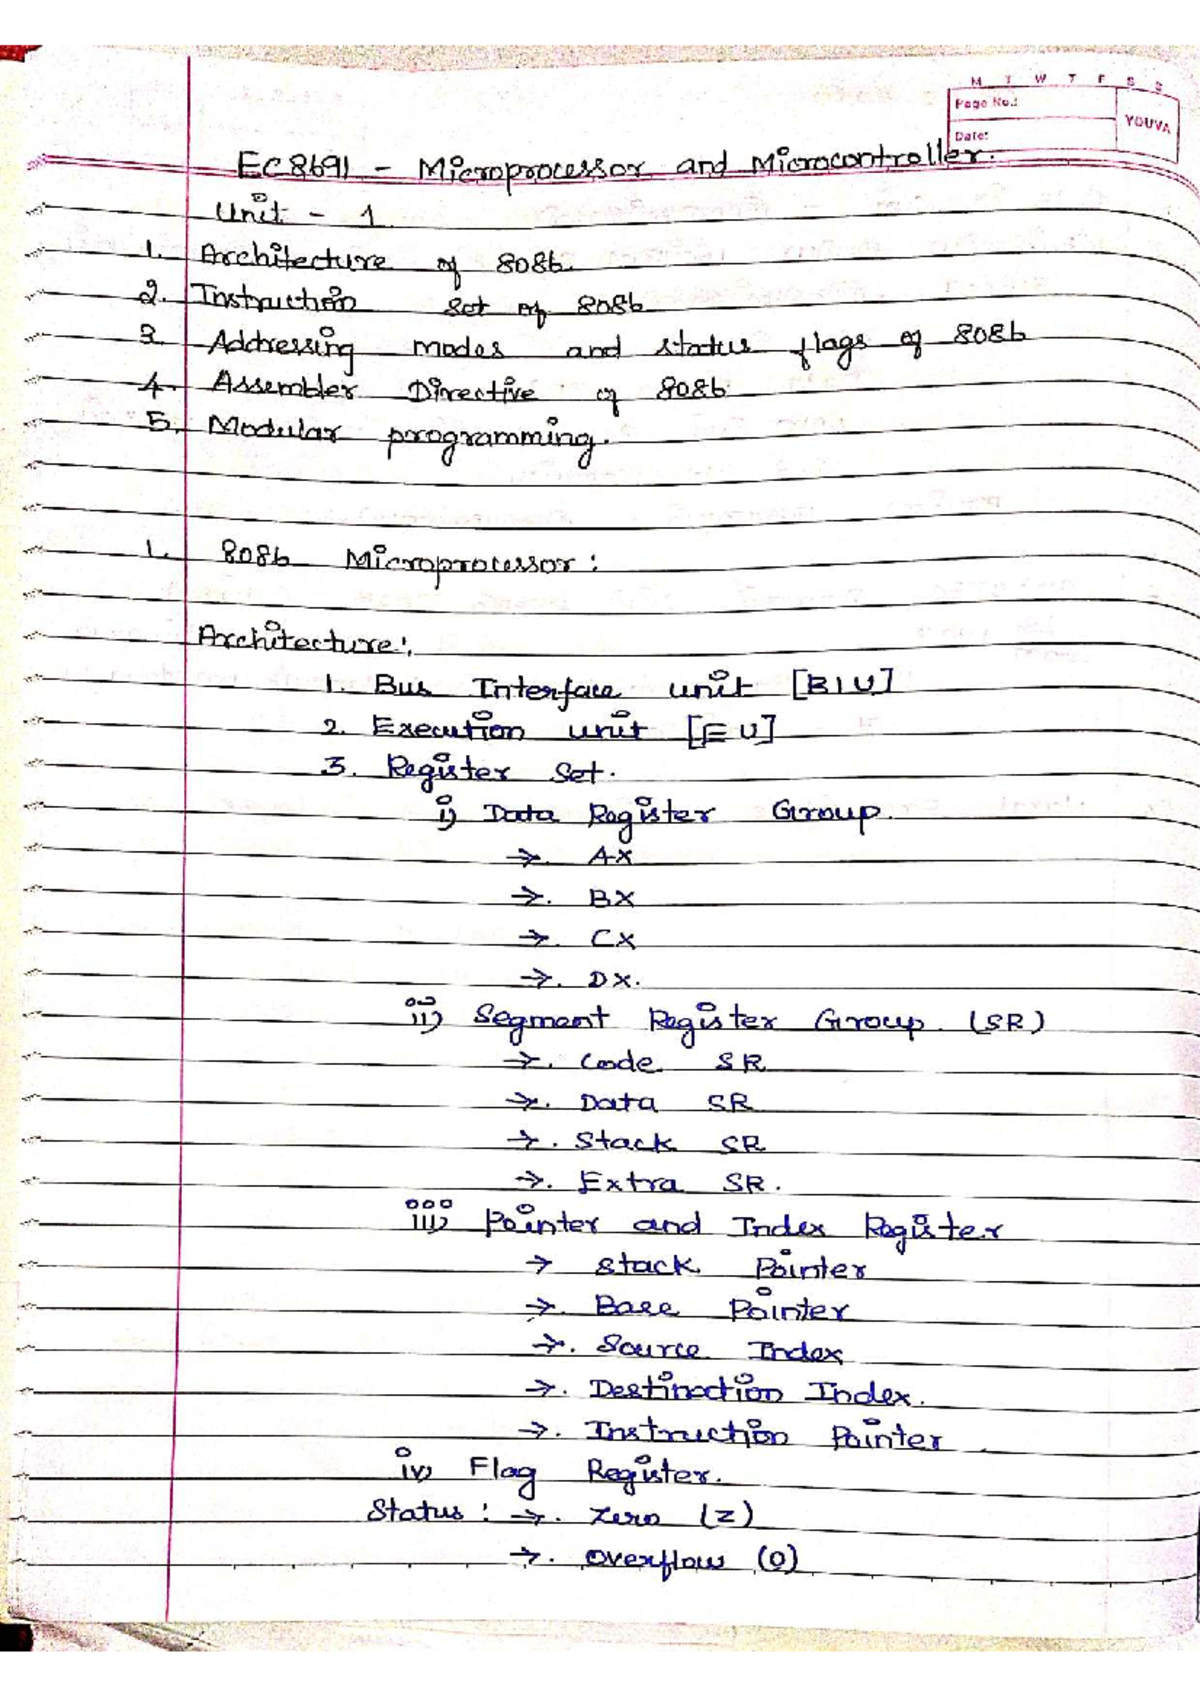 M T W T F S S
Page No.:
Date:
YOUVA
EC8691 - Microprocessor and Microcontroller.
Unit - 1
1. Architecture of 8086.
2. Instruction set of 8086
3. Addressing modes and status flags of 8086
4. Assembler Directive of 8086
5. Modular programming.
1. 8086 Microprocessor:
Architecture:
1. Bus Interface unit [BIU]
2. Execution unit [EU]
3. Register Set.
i) Data Register Group.
→. AX
→. BX
→. CX
→. DX.
ii) Segment Register Group. (SR)
→. Code SR
→. Data SR
→. Stack SR
→. Extra SR.
iii) Pointer and Index Register
→ Stack Pointer
→. Base Pointer
→. Source Index
→. Destination Index.
→. Instruction Pointer
iv) Flag Register.
Status: →. Zero (Z)
→. Overflow (O)